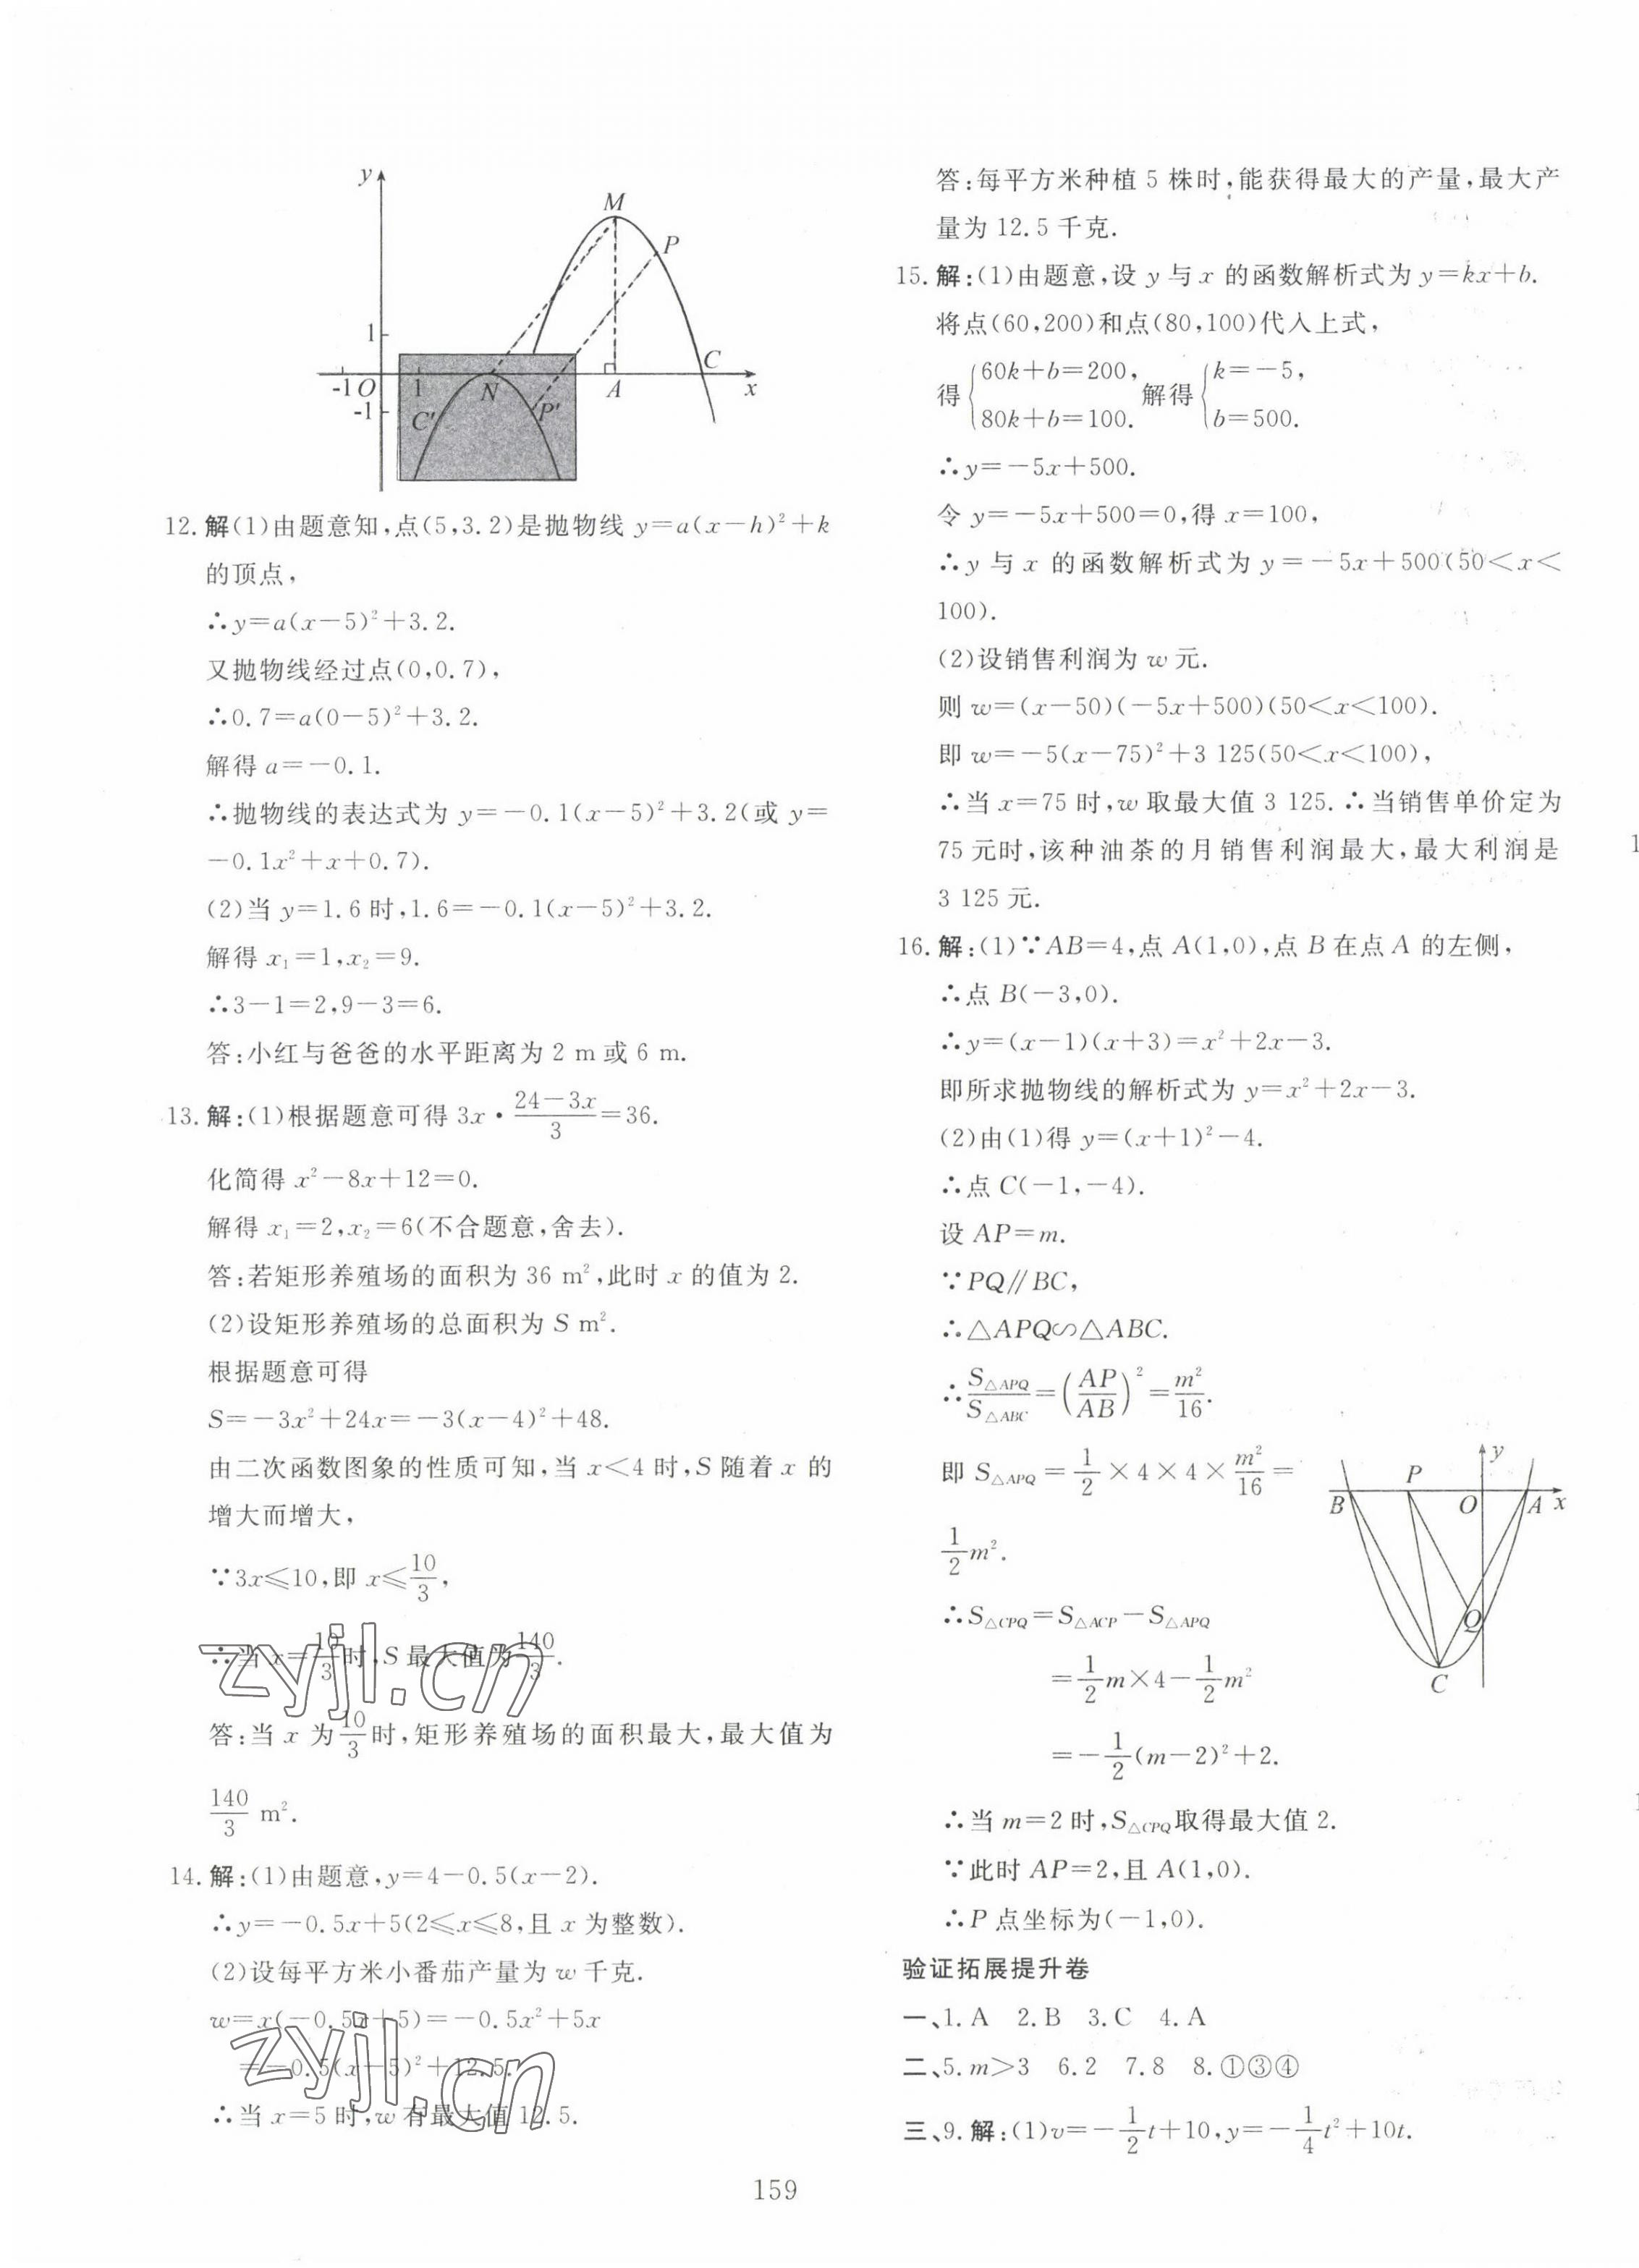 y
M
P
1
C
-1 O 1 N A x
-1 C' P'
12. 解(1)由题意知,点(5,3.2)是抛物线 y=a(x-h)²+k
的顶点,
∴y=a(x-5)²+3.2.
又抛物线经过点(0,0.7),
∴0.7=a(0-5)²+3.2.
解得 a=-0.1.
∴抛物线的表达式为 y=-0.1(x-5)²+3.2(或 y=
-0.1x²+x+0.7).
(2)当 y=1.6 时,1.6=-0.1(x-5)²+3.2.
解得 x₁=1,x₂=9.
∴3-1=2,9-3=6.
答:小红与爸爸的水平距离为 2 m 或 6 m.
13. 解:(1)根据题意可得 3x·(24-3x)/3=36.
化简得 x²-8x+12=0.
解得 x₁=2,x₂=6(不合题意,舍去).
答:若矩形养殖场的面积为 36 m²,此时 x 的值为 2.
(2)设矩形养殖场的总面积为 S m².
根据题意可得
S=-3x²+24x=-3(x-4)²+48.
由二次函数图象的性质可知,当 x<4 时,S 随着 x 的
增大而增大,
∵3x≤10,即 x≤10/3,
∴当 x=10/3时,S 最大值为140/3.
zyjl.cn
答:当 x 为10/3时,矩形养殖场的面积最大,最大值为
140/3 m².
14. 解:(1)由题意,y=4-0.5(x-2).
∴y=-0.5x+5(2≤x≤8,且 x 为整数).
(2)设每平方米小番茄产量为 w 千克.
w=x(-0.5x+5)=-0.5x²+5x
=-0.5(x-5)²+12.5.
zyjl.cn
∴当 x=5 时,w 有最大值 12.5.
答:每平方米种植 5 株时,能获得最大的产量,最大产
量为 12.5 千克.
15. 解:(1)由题意,设 y 与 x 的函数解析式为 y=kx+b.
将点(60,200)和点(80,100)代入上式,
得{60k+b=200, 80k+b=100. 解得{k=-5, b=500.
∴y=-5x+500.
令 y=-5x+500=0,得 x=100,
∴y 与 x 的函数解析式为 y=-5x+500(50<x<
100).
(2)设销售利润为 w 元.
则 w=(x-50)(-5x+500)(50<x<100).
即 w=-5(x-75)²+3 125(50<x<100),
∴当 x=75 时,w 取最大值 3 125. ∴当销售单价定为
75 元时,该种油茶的月销售利润最大,最大利润是
3 125 元.
16. 解:(1)∵AB=4,点 A(1,0),点 B 在点 A 的左侧,
∴点 B(-3,0).
∴y=(x-1)(x+3)=x²+2x-3.
即所求抛物线的解析式为 y=x²+2x-3.
(2)由(1)得 y=(x+1)²-4.
∴点 C(-1,-4).
设 AP=m.
∵PQ∥BC,
∴△APQ∽△ABC.
∴S△APQ/S△ABC=(AP/AB)²=m²/16.
即 S△APQ=1/2×4×4×m²/16=
1/2m².
∴S△CPQ=S△ACP-S△APQ
=1/2m×4-1/2m²
=-1/2(m-2)²+2.
y
P
B O A x
Q
C
∴当 m=2 时,S△CPQ取得最大值 2.
∵此时 AP=2,且 A(1,0).
∴P 点坐标为(-1,0).
验证拓展提升卷
一、1. A 2. B 3. C 4. A
二、5. m>3 6. 2 7. 8 8. ①③④
三、9. 解:(1)v=-1/2t+10,y=-1/4t²+10t.
159